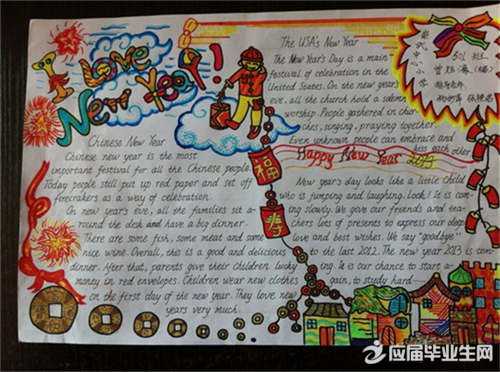 I Love
New Year!
Chinese New Year
Chinese new year is the most
important festival for all the Chinese people.
Today people still put up red paper and set off
firecrakers as a way of celebration.
On new year's eve, all the families sit a-
round the desk and have a big dinner.
There are some fish, some meat and some
nice wine. Overall, this is a good and delicious
dinner. After that, parents give their children lucky
money in red envelopes. Children wear new clothes
on the first day of the new year. They love new
years very much.
The USA's New Year
The New Year's Day is a main
festival of celebration in the
United States. On the new year's
eve, all the church hold a solemn
worship. People gathered in chur-
ches, singing, praying together.
Even unknown people can embrace and
each other
Happy New Year
New year's day looks like a little child
who is jumping and laughing. Look! It is co-
ing slowly. We give our friends and tea-
chers lots of presents to express our deep
love and best wishes. We say "goodbye"
to the last 2012. The new year 2013 is com-
ing. It is our chance to start a-
gain, to study hard
福
应届毕业生网